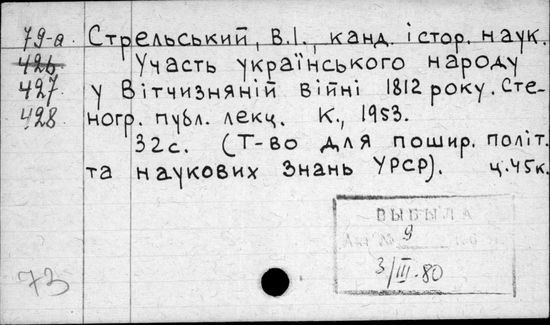 79-а. Стрельський, В.І., канд. істор. наук.
426 Участь українського народу
427 у Вітчизняній війні 1812 року. Сте-
428 ногр. публ. лекц. К., 1953.
32с. (Т-во для пошир. політ.
та наукових знань УРСР). ц.45к.
ВЫБЫЛА
Акт № 9
3/III.80
73